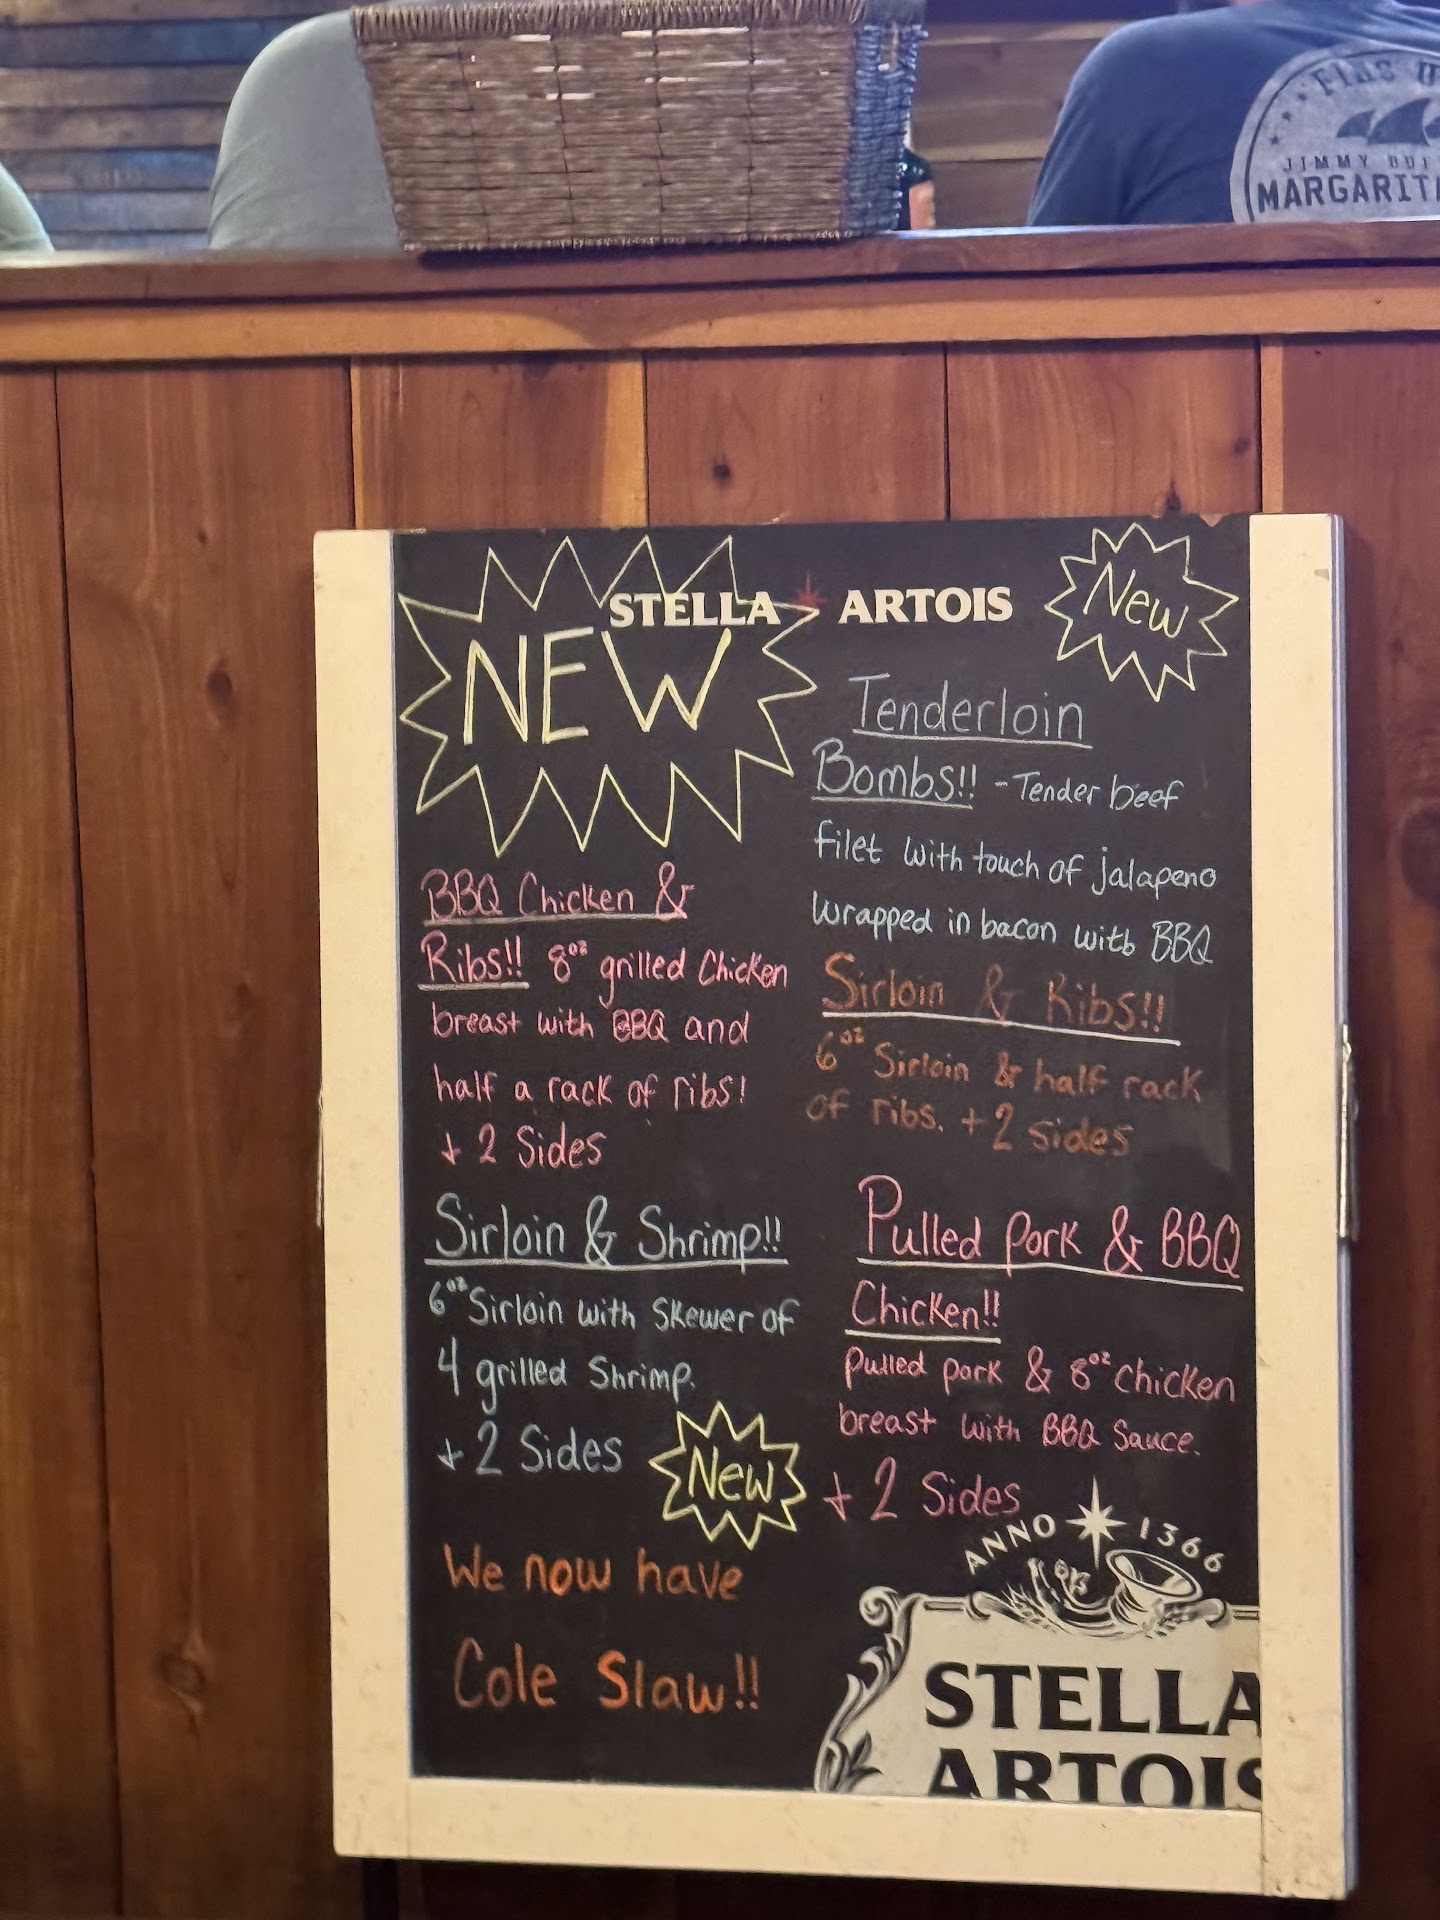 FINS U
JIMMY BUF
MARGARIT
STELLA ARTOIS
NEW
BBQ Chicken &
Ribs!! 8oz grilled Chicken
breast with BBQ and
half a rack of ribs!
+ 2 Sides
Sirloin & Shrimp!!
6oz Sirloin with Skewer of
4 grilled Shrimp.
+ 2 Sides
New
We now have
Cole Slaw!!
New
Tenderloin
Bombs!! - Tender beef
filet with touch of jalapeno
wrapped in bacon with BBQ
Sirloin & Ribs!!
6oz Sirloin & half rack
of ribs. + 2 sides
Pulled pork & BBQ
Chicken!!
pulled pork & 8oz chicken
breast with BBQ Sauce.
+ 2 Sides
ANNO 1366
STELLA
ARTOIS